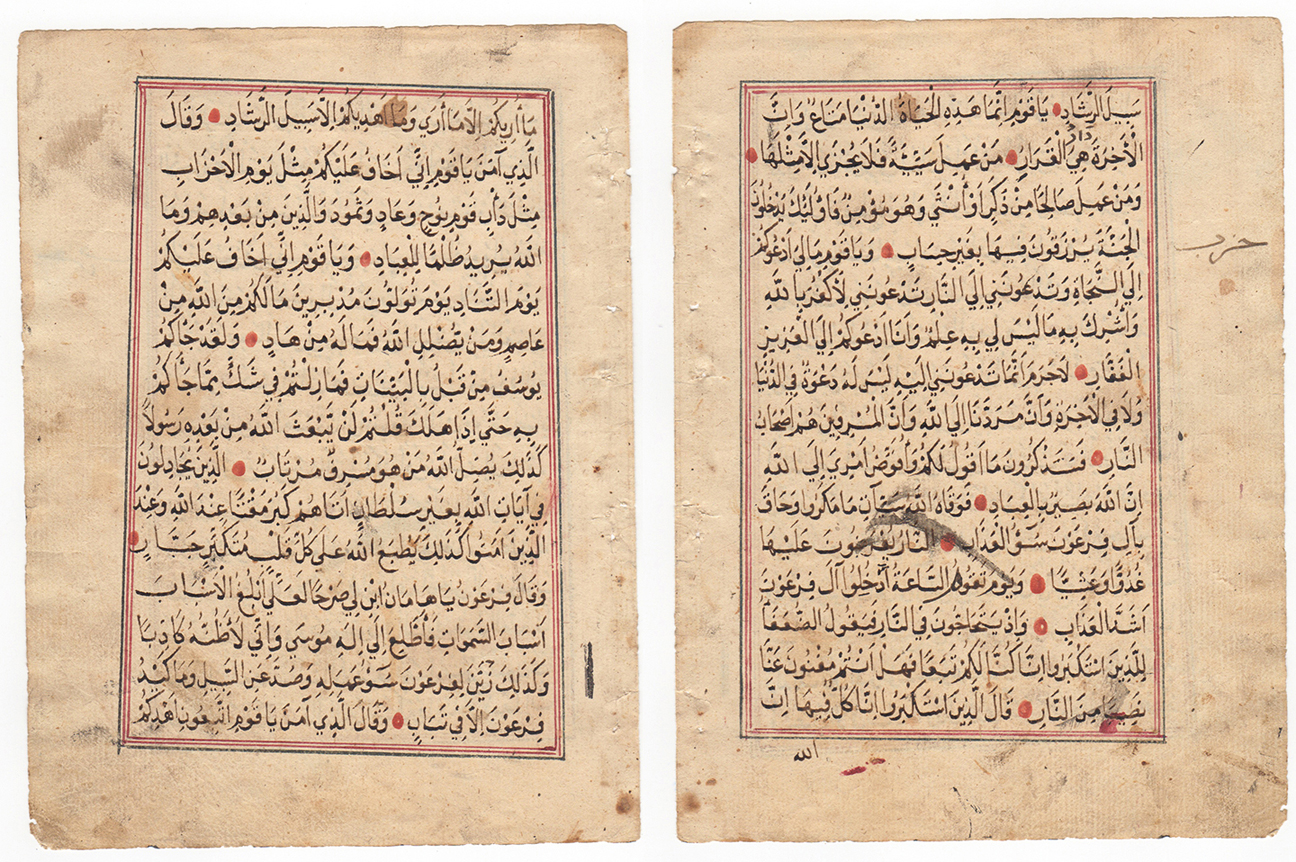 مَا أُرِيكُمْ إِلَّا مَا أَرَى وَمَا أَهْدِيكُمْ إِلَّا سَبِيلَ الرَّشَادِ وَقَالَ
الَّذِي آمَنَ يَا قَوْمِ إِنِّي أَخَافُ عَلَيْكُمْ مِثْلَ يَوْمِ الْأَحْزَابِ
مِثْلَ دَأْبِ قَوْمِ نُوحٍ وَعَادٍ وَثَمُودَ وَالَّذِينَ مِنْ بَعْدِهِمْ وَمَا
اللَّهُ يُرِيدُ ظُلْمًا لِلْعِبَادِ وَيَا قَوْمِ إِنِّي أَخَافُ عَلَيْكُمْ
يَوْمَ التَّنَادِ يَوْمَ تُوَلُّونَ مُدْبِرِينَ مَا لَكُمْ مِنَ اللَّهِ مِنْ
عَاصِمٍ وَمَنْ يُضْلِلِ اللَّهُ فَمَا لَهُ مِنْ هَادٍ وَلَقَدْ جَاكُمْ
يُوسُفُ مِنْ قَبْلُ بِالْبَيِّنَاتِ فَمَا زِلْتُمْ فِي شَكٍّ مِمَّا جَاكُمْ
بِهِ حَتَّى إِذَا هَلَكَ قُلْتُمْ لَنْ يَبْعَثَ اللَّهُ مِنْ بَعْدِهِ رَسُولًا
كَذَلِكَ يُضِلُّ اللَّهُ مَنْ هُوَ مُسْرِفٌ مُرْتَابٌ الَّذِينَ يُجَادِلُونَ
فِي آيَاتِ اللَّهِ بِغَيْرِ سُلْطَانٍ أَتَاهُمْ كَبُرَ مَقْتًا عِنْدَ اللَّهِ وَعِنْدَ
الَّذِينَ آمَنُوا كَذَلِكَ يَطْبَعُ اللَّهُ عَلَى كُلِّ قَلْبِ مُتَكَبِّرٍ جَبَّارٍ
وَقَالَ فِرْعَوْنُ يَا هَامَانُ ابْنِ لِي صَرْحًا لَعَلِّي أَبْلُغُ الْأَسْبَابَ
أَسْبَابَ السَّمَوَاتِ فَأَطَّلِعَ إِلَى إِلَهِ مُوسَى وَإِنِّي لَأَظُنُّهُ كَاذِبًا
وَكَذَلِكَ زُيِّنَ لِفِرْعَوْنَ سُوءُ عَمَلِهِ وَصُدَّ عَنِ السَّبِيلِ وَمَا كَيْدُ
فِرْعَوْنَ إِلَّا فِي تَبَابٍ وَقَالَ الَّذِي آمَنَ يَا قَوْمِ اتَّبِعُونِ أَهْدِكُمْ
سَبِيلَ الرَّشَادِ يَا قَوْمِ إِنَّمَا هَذِهِ الْحَيَاةُ الدُّنْيَا مَتَاعٌ وَإِنَّ
الْآخِرَةَ هِيَ دَارُ الْقَرَارِ مَنْ عَمِلَ سَيِّئَةً فَلَا يُجْزَى إِلَّا مِثْلَهَا
وَمَنْ عَمِلَ صَالِحًا مِنْ ذَكَرٍ أَوْ أُنْثَى وَهُوَ مُؤْمِنٌ فَأُولَئِكَ يَدْخُلُونَ
الْجَنَّةَ يُرْزَقُونَ فِيهَا بِغَيْرِ حِسَابٍ وَيَا قَوْمِ مَا لِي أَدْعُوكُمْ
إِلَى النَّجَاةِ وَتَدْعُونَنِي إِلَى النَّارِ تَدْعُونَنِي لِأَكْفُرَ بِاللَّهِ
وَأُشْرِكَ بِهِ مَا لَيْسَ لِي بِهِ عِلْمٌ وَأَنَا أَدْعُوكُمْ إِلَى الْعَزِيزِ
الْغَفَّارِ لَا جَرَمَ أَنَّمَا تَدْعُونَنِي إِلَيْهِ لَيْسَ لَهُ دَعْوَةٌ فِي الدُّنْيَا
وَلَا فِي الْآخِرَةِ وَأَنَّ مَرَدَّنَا إِلَى اللَّهِ وَأَنَّ الْمُسْرِفِينَ هُمْ أَصْحَابُ
النَّارِ فَسَتَذْكُرُونَ مَا أَقُولُ لَكُمْ وَأُفَوِّضُ أَمْرِي إِلَى اللَّهِ
إِنَّ اللَّهَ بَصِيرٌ بِالْعِبَادِ فَوَقَاهُ اللَّهُ سَيِّئَاتِ مَا مَكَرُوا وَحَاقَ
بِآلِ فِرْعَوْنَ سُوءُ الْعَذَابِ النَّارُ يُعْرَضُونَ عَلَيْهَا
غُدُوًّا وَعَشِيًّا وَيَوْمَ تَقُومُ السَّاعَةُ أَدْخِلُوا آلَ فِرْعَوْنَ
أَشَدَّ الْعَذَابِ وَإِذْ يَتَحَاجُّونَ فِي النَّارِ فَيَقُولُ الضُّعَفَا
لِلَّذِينَ اسْتَكْبَرُوا إِنَّا كُنَّا لَكُمْ تَبَعًا فَهَلْ أَنْتُمْ مُغْنُونَ عَنَّا
نَصِيبًا مِنَ النَّارِ قَالَ الَّذِينَ اسْتَكْبَرُوا إِنَّا كُلٌّ فِيهَا إِنَّ
الله
حزب